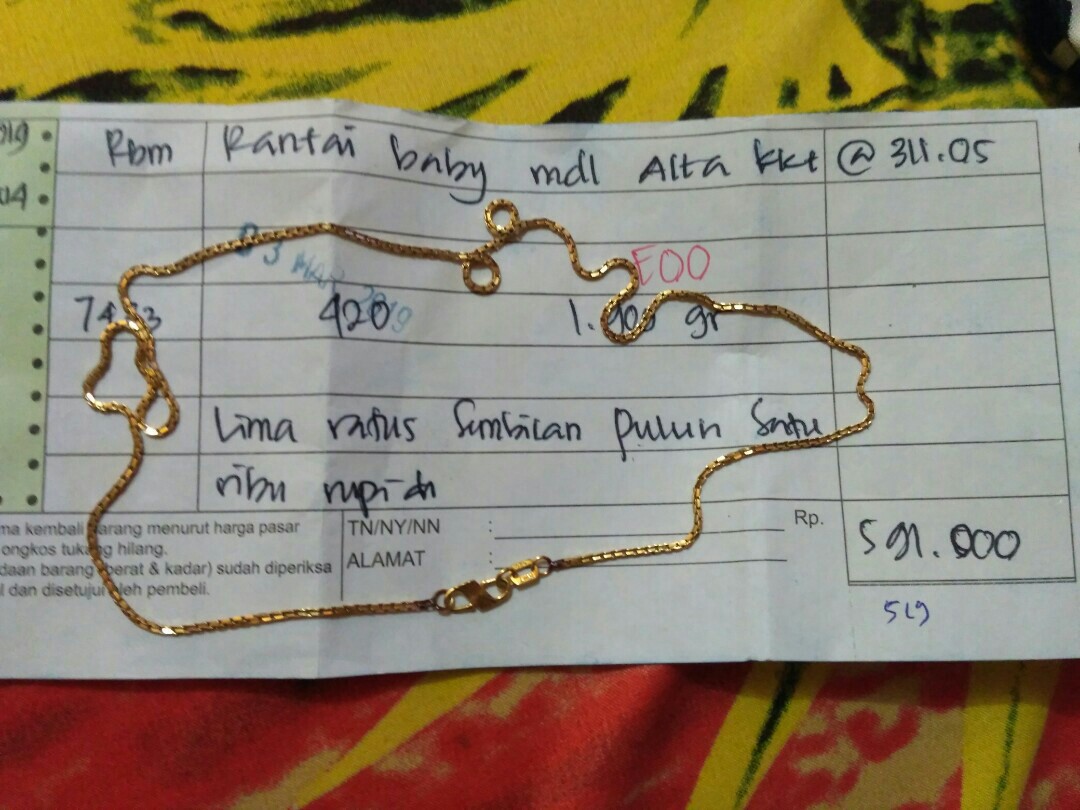 019
Rbm Rantai baby mdl Alta kkt @ 311.05
014
03 MAR 2019
E00
420 1.900 gr
Lima ratus Sembilan Puluh Satu
ribu rupiah
ma kembali barang menurut harga pasar
ongkos tukang hilang.
daan barang (berat & kadar) sudah diperiksa
l dan disetujui oleh pembeli.
TN/NY/NN :
ALAMAT :
Rp. 591.000
519